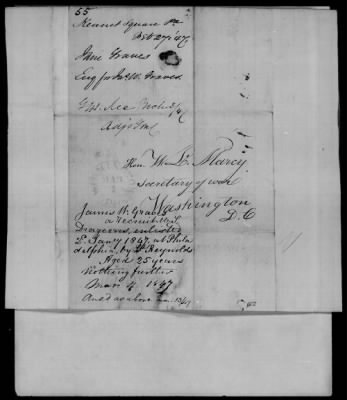 55
Kennet Square Pa
Feb 27, '47
Jane Graves
Enq for Jas. W. Graves
Adjt Genl
Hon. W. L. Marcy
Secretary of war
Washington
D. C
James W. Graves
a recruit
Dragoons, enlisted
Jany 1847, at Phila
delphia, by Lt Reynolds
Aged 25 years
Nothing further
Mar. 4, 1847
Ansd as above